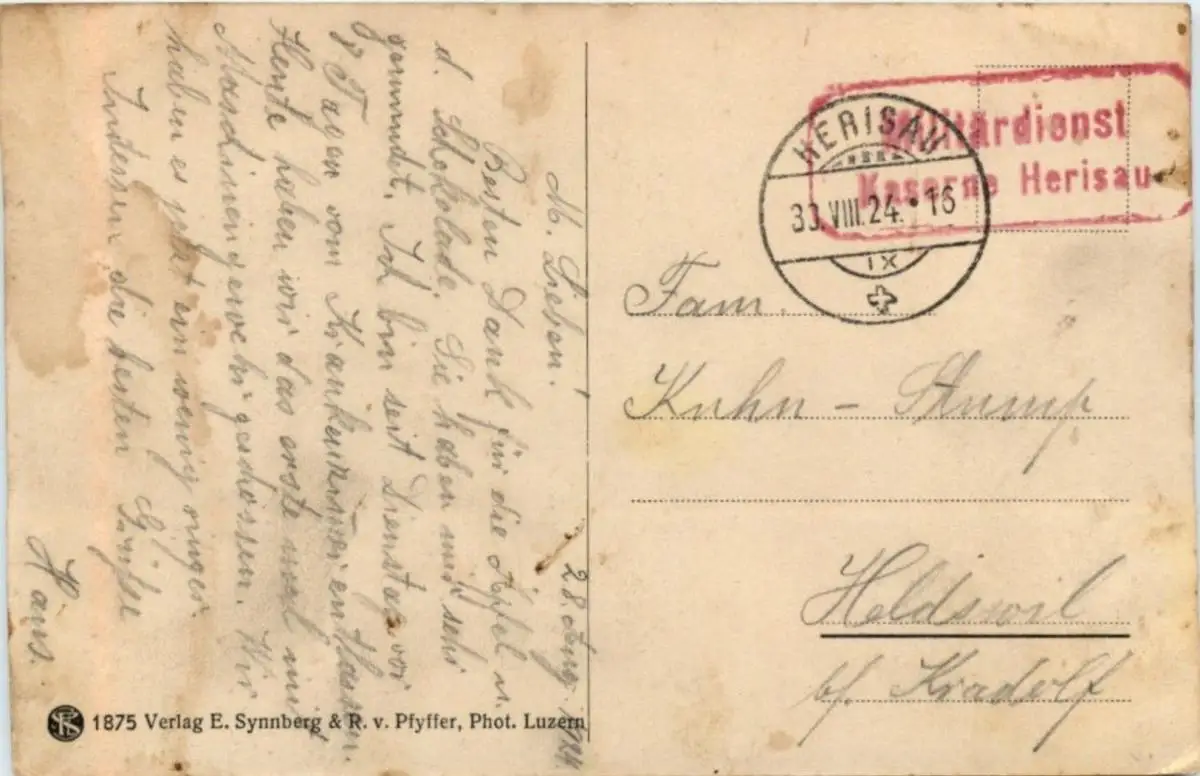 28. Aug. 1924
M. Lieben!
Besten Dank für die Äpfel u.
d. Schokolade. Sie haben mir sehr
gemundet. Ich bin seit Dienstag vor
8 Tagen vom Krankenzimmer entlassen.
Heute haben wir das erste mal mit
Maschinengewehr geschossen. Wir
haben es jetzt ein wenig ringer.
Indessen die besten Grüsse
Hans.
1875 Verlag E. Synnberg & R. v. Pfyffer, Phot. Luzern
Militärdienst
Kaserne Herisau
HERISAU
30.VIII.24.•16
IX
Fam.
Kuhn - Stump
Heldswil
bf. Kradolf